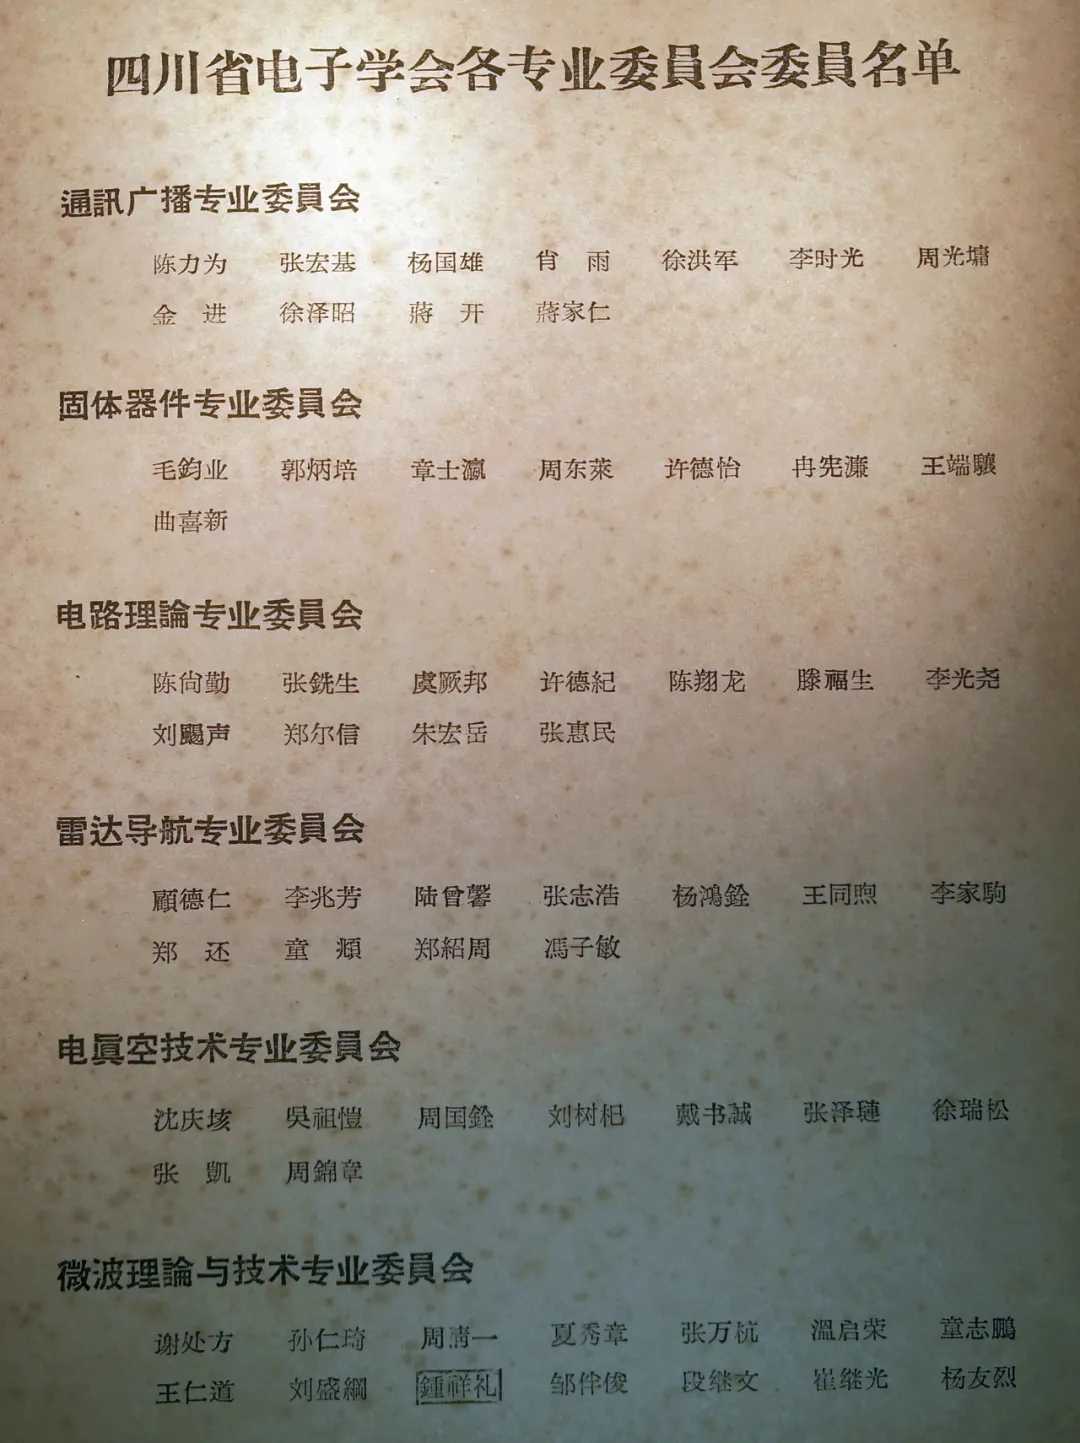 四川省电子学会各专业委員会委員名单
通訊广播专业委員会
陈力为 张宏基 杨国雄 肖 雨 徐洪军 李时光 周光墉
金 进 徐泽昭 蔣 开 蔣家仁
固体器件专业委員会
毛鈞业 郭炳培 章士瀛 周东萊 许德怡 冉宪濂 王端驤
曲喜新
电路理論专业委員会
陈尙勤 张銑生 虞厥邦 许德紀 陈翔龙 滕福生 李光尧
刘颺声 郑尔信 朱宏岳 张惠民
雷达导航专业委員会
顧德仁 李兆芳 陆曾馨 张志浩 杨鴻銓 王同煦 李家駒
郑 还 童 頫 郑紹周 馮子敏
电眞空技术专业委員会
沈庆垓 吳祖愷 周国銓 刘树杞 戴书誠 张泽璉 徐瑞松
张 凱 周錦章
微波理論与技术专业委員会
谢处方 孙仁琦 周淸一 夏秀章 张万杭 溫启荣 童志鵬
王仁道 刘盛綱 鍾祥礼 邹伴俊 段继文 崔继光 杨友烈